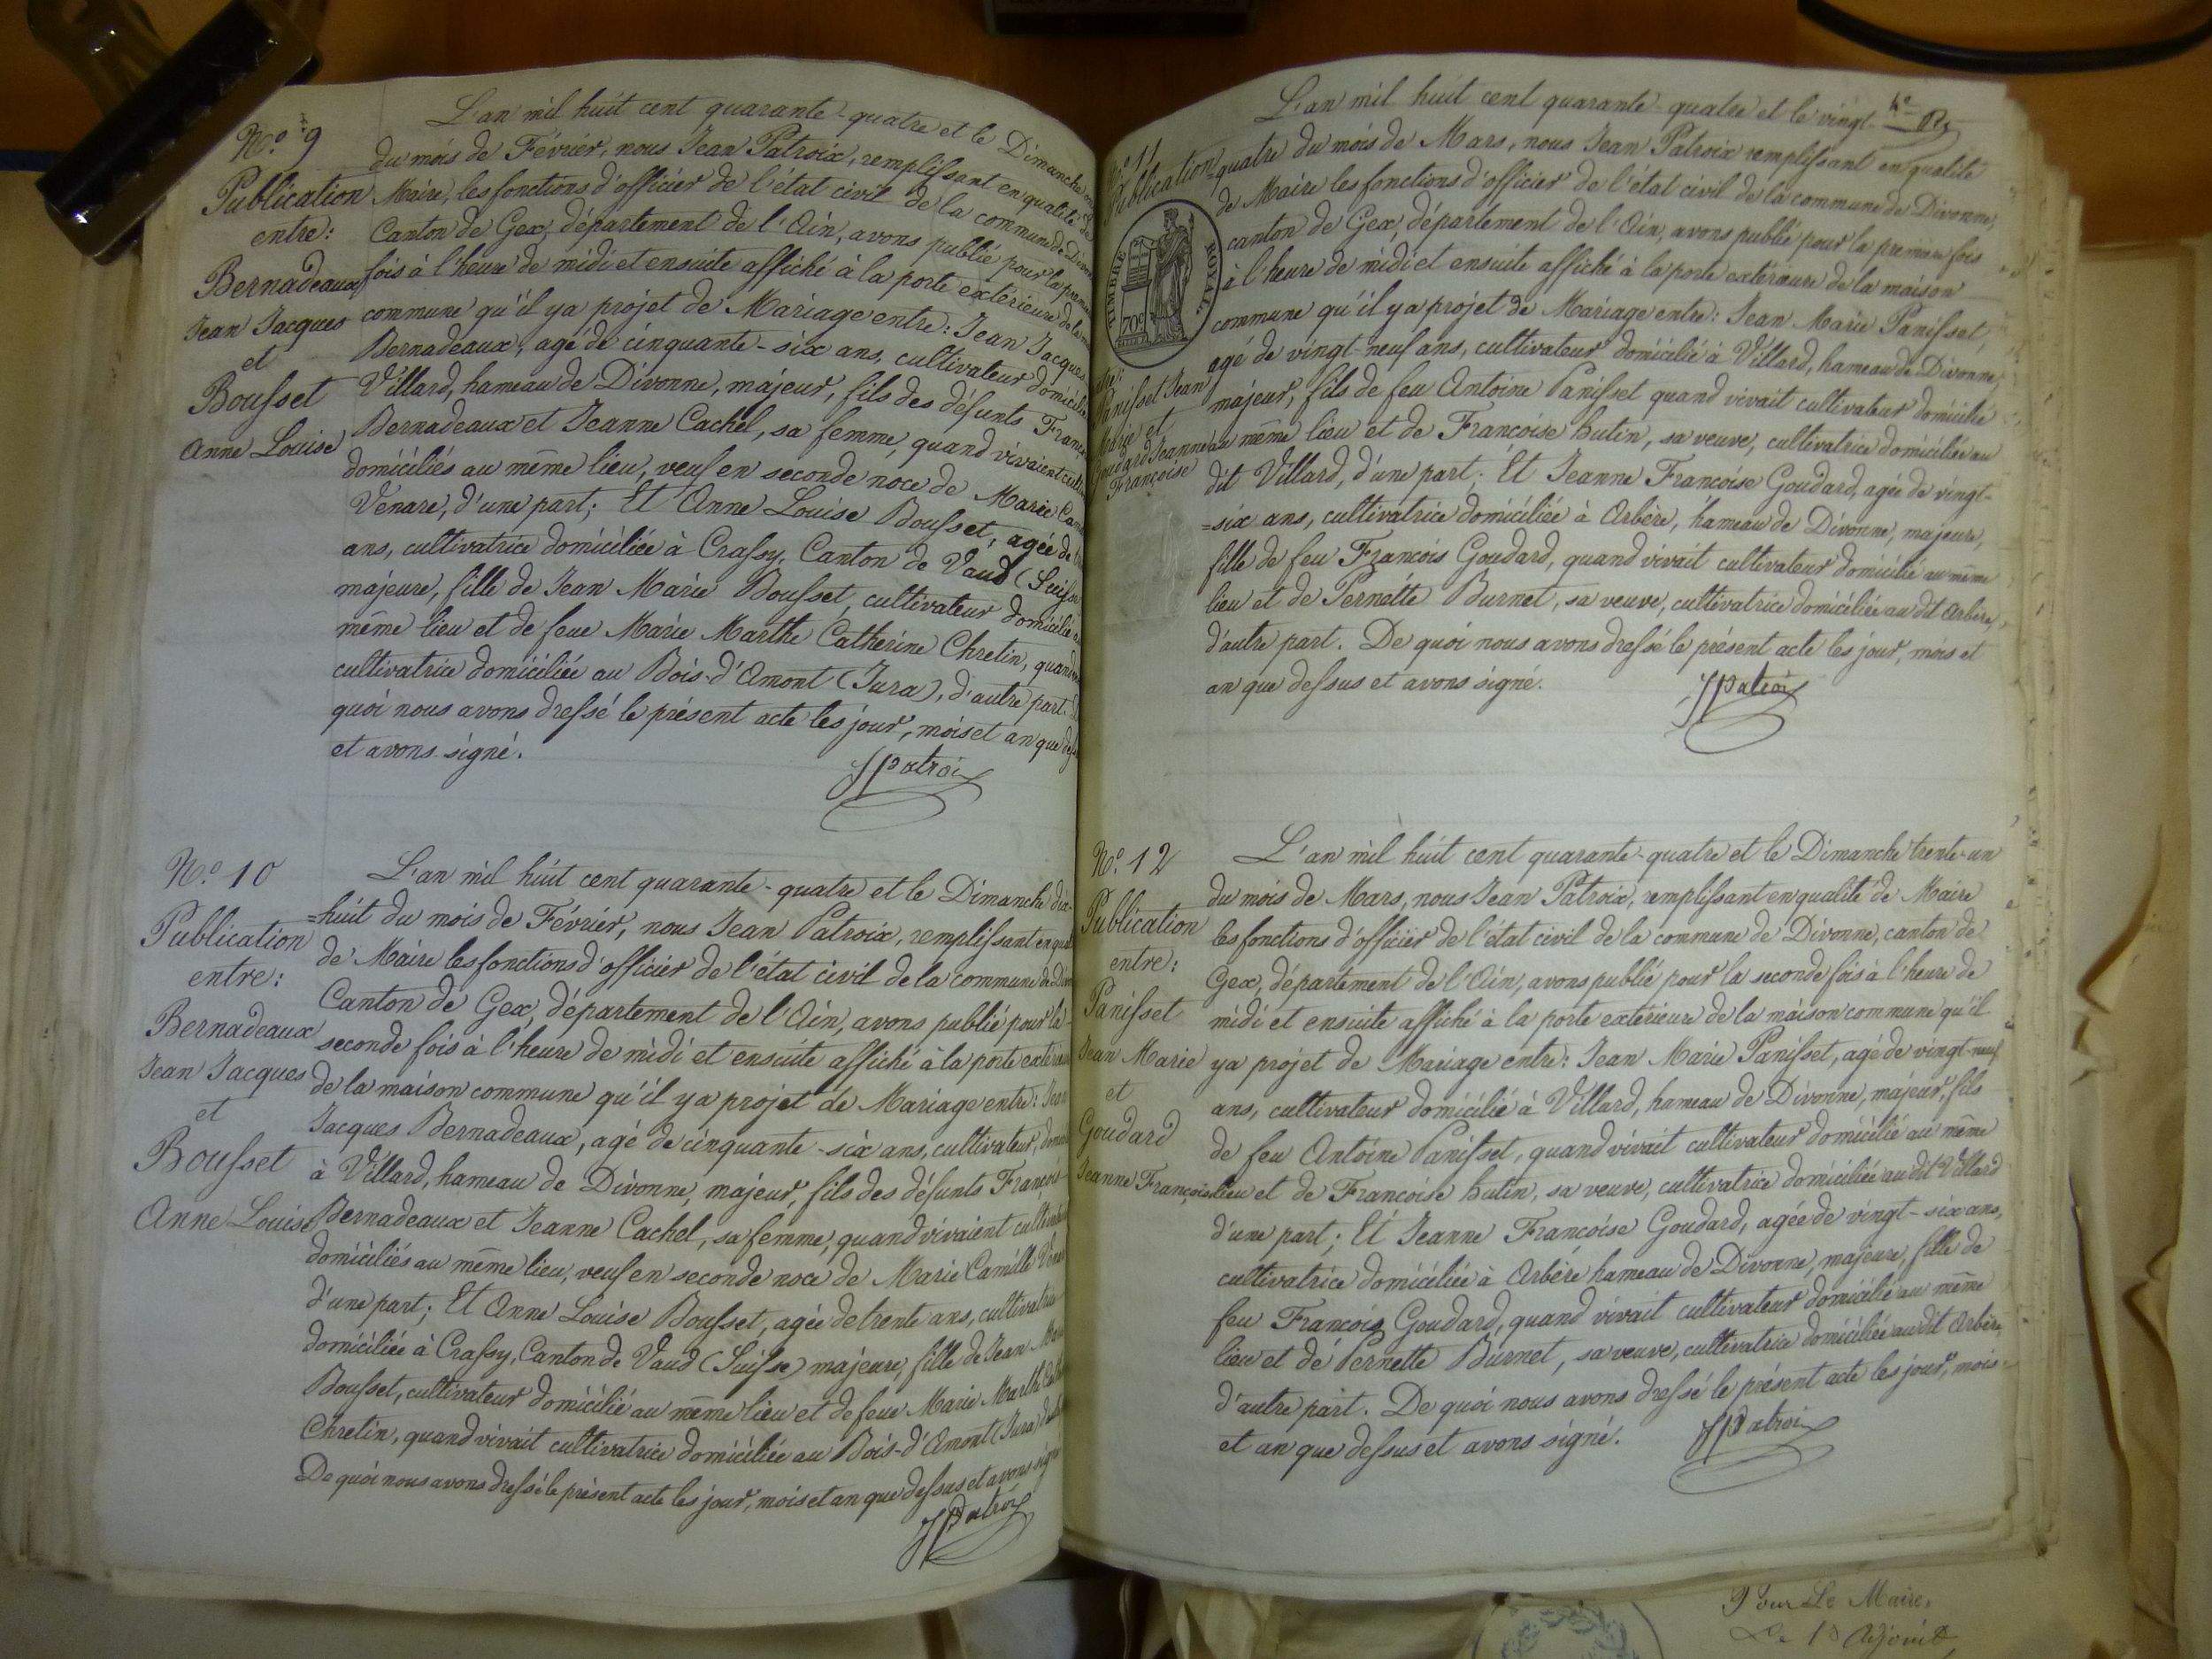 N.o 9
Publication
entre:
Bernadeaux
Jean Jacques
et
Bousset
Anne Louise
L'an mil huit cent quarante-quatre et le Dimanche
du mois de Février, nous Jean Patroix, remplissant en qualité de
Maire, les fonctions d'officier de l'état civil de la commune de
Canton de Gex, département de l'Ain, avons publié pour la
fois à l'heure de midi et ensuite affiché à la porte extérieure de la
commune qu'il y a projet de Mariage entre: Jean Jacques
Bernadeaux, agé de cinquante-six ans, cultivateur
Villard, hameau de Divonne, majeur, fils des défunts
Bernadeaux et Jeanne Cachel, sa femme, quand vivaient
domiciliés au même lieu, veuf en seconde noce de Marie
Venare, d'une part; Et Anne Louise Bousset, agée de
ans, cultivatrice domiciliée à Crassy, Canton de Vaud (Suisse
majeure, fille de Jean Marie Bousset, cultivateur domicilié
même lieu et de feue Marie Marthe Catherine Chretin,
cultivatrice domiciliée au Bois-d'Amont (Jura), d'autre part.
quoi nous avons dressé le présent acte les jour, mois et an que
et avons signé.
JPatroix
N.o 10
Publication
entre:
Bernadeaux
Jean Jacques
et
Bousset
Anne Louise
L'an mil huit cent quarante-quatre et le Dimanche dix-
=huit du mois de Février, nous Jean Patroix, remplissant en
de Maire les fonctions d'officier de l'état civil de la commune de
Canton de Gex, département de l'Ain, avons publié pour la
seconde fois à l'heure de midi et ensuite affiché à la porte
de la maison commune qu'il y a projet de Mariage entre: Jean
Jacques Bernadeaux, agé de cinquante-six ans, cultivateur,
à Villard, hameau de Divonne, majeur, fils des défunts François
Bernadeaux et Jeanne Cachel, sa femme, quand vivaient
domiciliés au même lieu, veuf en seconde noce de Marie Camille
d'une part; Et Anne Louise Bousset, agée de trente ans, cultivatrice
domiciliée à Crassy, Canton de Vaud (Suisse) majeure, fille de Jean
Bousset, cultivateur domicilié au même lieu et de feue Marie Marthe
Chretin, quand vivait cultivatrice domiciliée au Bois-d'Amont (Jura)
De quoi nous avons dressé le présent acte les jour, mois et an que dessus et avons signé
JPatroix
N.o 11
Publication
TIMBRE ROYAL
70c
Panisset Jean
Marie et
Goudard Jeanne
Françoise
L'an mil huit cent quarante-quatre et le vingt-
quatre du mois de Mars, nous Jean Patroix remplissant en qualité
de Maire les fonctions d'officier de l'état civil de la commune de Divonne,
canton de Gex, département de l'Ain, avons publié pour la première fois
à l'heure de midi et ensuite affiché à la porte extérieure de la maison
commune qu'il y a projet de Mariage entre: Jean Marie Panisset,
agé de vingt-neuf ans, cultivateur domicilié à Villard, hameau de Divonne,
majeur, fils de feu Antoine Panisset quand vivait cultivateur domicilié
au même lieu et de Francoise hutin, sa veuve, cultivatrice domiciliée au
dit Villard, d'une part. Et Jeanne Francoise Goudard, agée de vingt-
=six ans, cultivatrice domiciliée à Arbère, hameau de Divonne, majeure,
fille de feu Francois Goudard, quand vivait cultivateur domicilié au même
lieu et de Pernette Burnet, sa veuve, cultivatrice domiciliée au dit Arbère,
d'autre part. De quoi nous avons dressé le présent acte les jour, mois et
an que dessus et avons signé.
JPatroix
N.o 12
Publication
entre:
Panisset
Jean Marie
et
Goudard
Jeanne Françoise
L'an mil huit cent quarante-quatre et le Dimanche trente-un
du mois de Mars, nous Jean Patroix, remplissant en qualité de Maire
les fonctions d'officier de l'état civil de la commune de Divonne, canton de
Gex, département de l'Ain, avons publié pour la seconde fois à l'heure de
midi et ensuite affiché à la porte extérieure de la maison commune qu'il
y a projet de Mariage entre: Jean Marie Panisset, agé de vingt-neuf
ans, cultivateur domicilié à Villard, hameau de Divonne, majeur, fils
de feu Antoine Panisset, quand vivait cultivateur domicilié au même
lieu et de Francoise hutin, sa veuve, cultivatrice domiciliée au dit Villard
d'une part; Et Jeanne Francoise Goudard, agée de vingt-six ans,
cultivatrice domiciliée à Arbère hameau de Divonne, majeure, fille de
feu Francois Goudard, quand vivait cultivateur domicilié au même
lieu et de Pernette Burnet, sa veuve, cultivatrice domiciliée au dit Arbère,
d'autre part. De quoi nous avons dressé le présent acte les jour, mois
et an que dessus et avons signé.
JPatroix
Pour Le Maire,
Le 1er Adjoint,